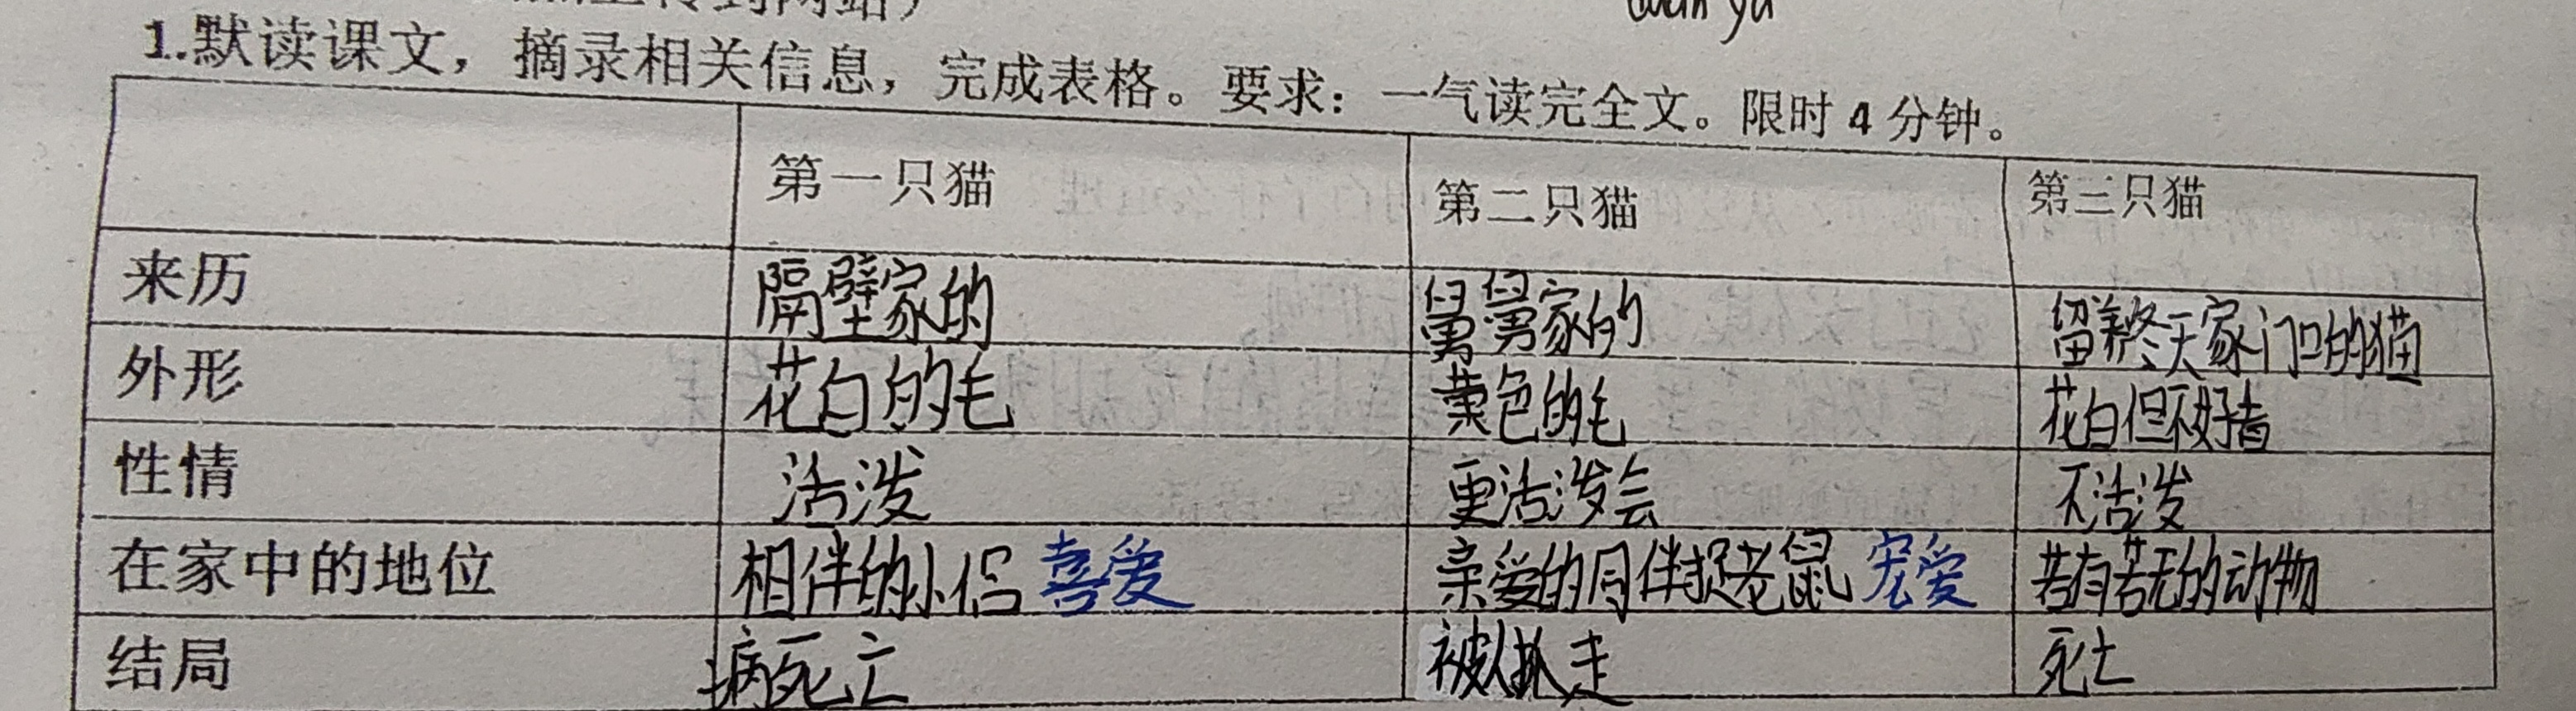 1.默读课文，摘录相关信息，完成表格。要求：一气读完全文。限时 4 分钟。
第一只猫 第二只猫 第三只猫
来历 隔壁家的 舅舅家的 留养冬天家门口的猫
外形 花白的毛 黄色的毛 花白但不好看
性情 活泼 更活泼会 不活泼
在家中的地位 相伴的小侣 喜爱 亲爱的同伴捉老鼠 宠爱 若有若无的动物
结局 病死亡 被人抓走 死亡